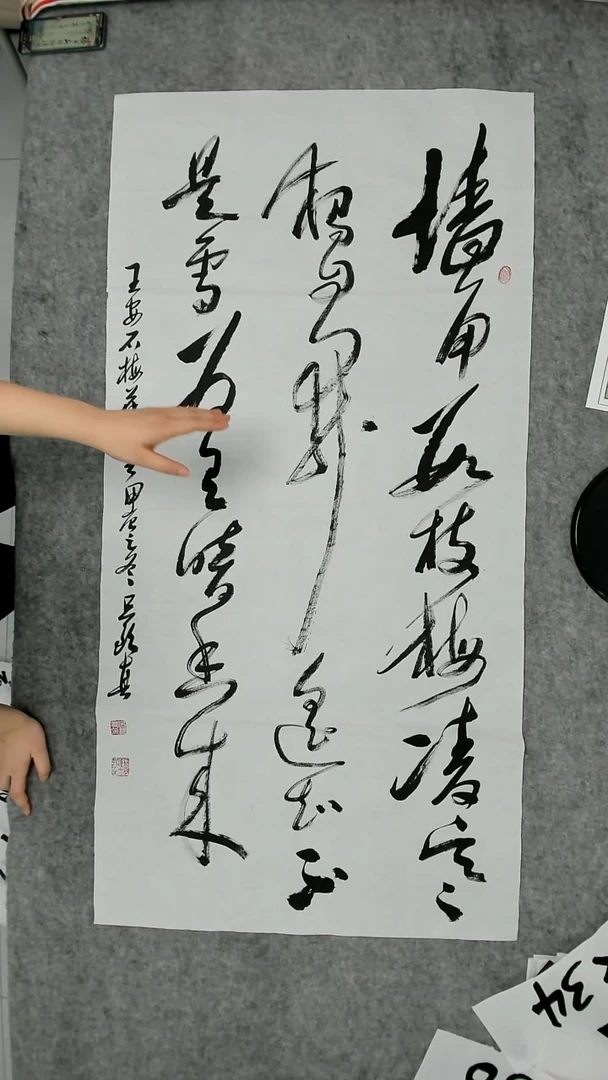 墙角数枝梅凌寒
独自开遥知不
是雪为有暗香来
王安石梅花 甲辰之冬 真